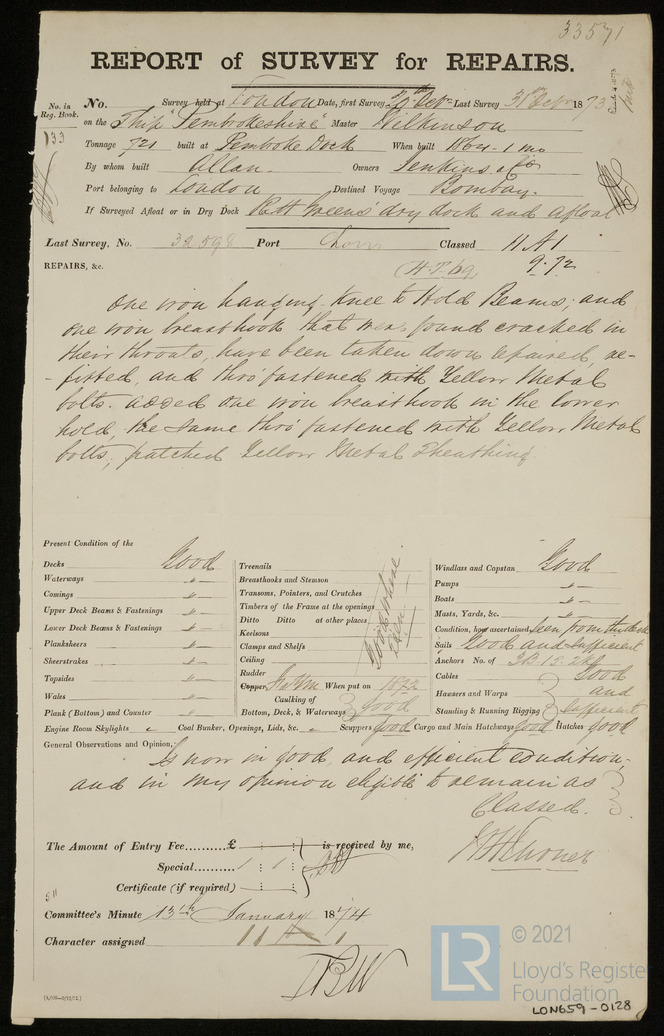 33571
REPORT of SURVEY for REPAIRS.
No. in Reg. Book. No. Survey held at London Date, first Survey Last Survey 31st Decr 1873
133 on the Ship "Pembrokeshire" Master Wilkinson
Tonnage 721 built at Pembroke Dock When built 1864 - 1 mo
By whom built Allan. Owners Jenkins & Co
Port belonging to London Destined Voyage Bombay.
If Surveyed Afloat or in Dry Dock R & H Greens' dry dock and afloat
Last Survey, No. 32598 Port Lon Classed 11 A1
REPAIRS, &c. (H.T. 69 9.72
One iron hanging Knee to Hold Beams; and
one iron breasthook that was found cracked in
their throats, have been taken down repaired, re-
-fitted, and thro' fastened with Yellow Metal
bolts. added one iron breasthook in the lower
hold, the same thro' fastened with Yellow Metal
bolts; patched Yellow Metal Sheathing.
Present Condition of the
Decks Good
Waterways "
Comings "
Upper Deck Beams & Fastenings "
Lower Deck Beams & Fastenings "
Planksheers "
Sheerstrakes "
Topsides "
Wales "
Plank (Bottom) and Counter "
Treenails
Breasthooks and Stemson
Transoms, Pointers, and Crutches
Timbers of the Frame at the openings
Ditto Ditto at other places
Keelsons
Clamps and Shelfs
Ceiling
Good where seen
Rudder
Copper, When put on 1872
Caulking of
Bottom, Deck, & Waterways good
Windlass and Capstan Good
Pumps "
Boats "
Masts, Yards, &c. "
Condition, how ascertained, Seen from the deck
Sails Good and Sufficient
Anchors No. of 3B. 1S. 2K
Cables Good
Hawsers and Warps and
Standing & Running Rigging Sufficient
Engine Room Skylights Coal Bunker, Openings, Lids, &c. Scuppers good Cargo and Main Hatchways good Hatches good
General Observations and Opinion,
Is now in good and efficient condition
and in my opinion eligible to remain as
Classed.
The Amount of Entry Fee..........£ : : is received by me,
Special......... 1 : 1 :
Certificate (if required) : :
Committee's Minute 13th January 1874
Character assigned 11 A 1
© 2021
LR
Lloyd's Register
Foundation
LON659-0128